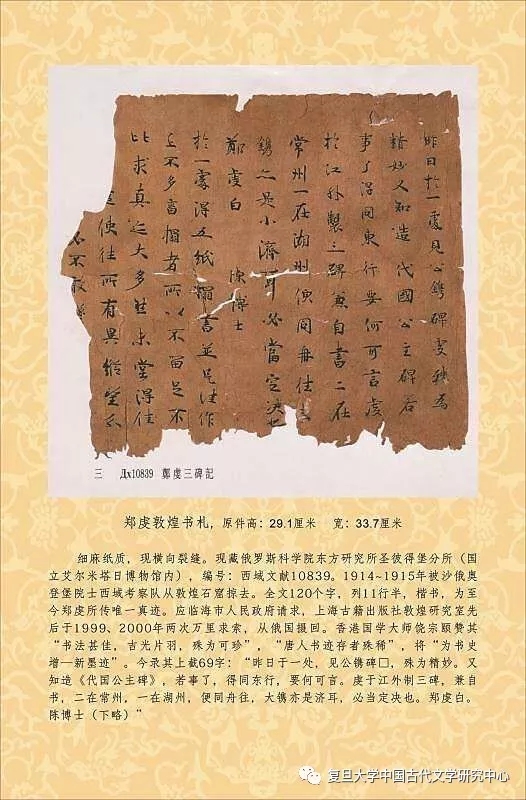 昨日於一處見公鐫碑殊為
精妙又知造代國公主碑若
事了得同東行要何可言虔
於江外製三碑兼自書二在
常州一在湖州便同舟往
鐫是小濟耳必當定決也
鄭虔白 陳博士
於一處得五紙書並是佳作
不多者所以不留足下
比求真大多未嘗得佳
使往所有異縱望
不
三 Дx10839 鄭虔三碑記
郑虔敦煌书札，原件高：29.1厘米 宽：33.7厘米
细麻纸质，现横向裂缝。现藏俄罗斯科学院东方研究所圣彼得堡分所（国
立艾尔米塔日博物馆内），编号：西域文献10839。1914~1915年被沙俄奥
登堡院士西域考察队从敦煌石窟掠去。全文120个字，列11行半，楷书，为至
今郑虔所传唯一真迹。应临海市人民政府请求，上海古籍出版社敦煌研究室先
后于1999、2000年两次万里求索，从俄国摄回。香港国学大师饶宗颐赞其
“书法甚佳，吉光片羽，殊为可珍”，“唐人书迹存者殊稀”，将“为书史
增一新墨迹”。今录其上截69字：“昨日于一处，见公镌碑□，殊为精妙。又
知造《代国公主碑》，若事了，得同东行，要何可言。虔于江外制三碑，兼自
书，二在常州，一在湖州，便同舟往，大镌亦是济耳，必当定决也。郑虔白。
陈博士（下略）”
复旦大学中国古代文学研究中心